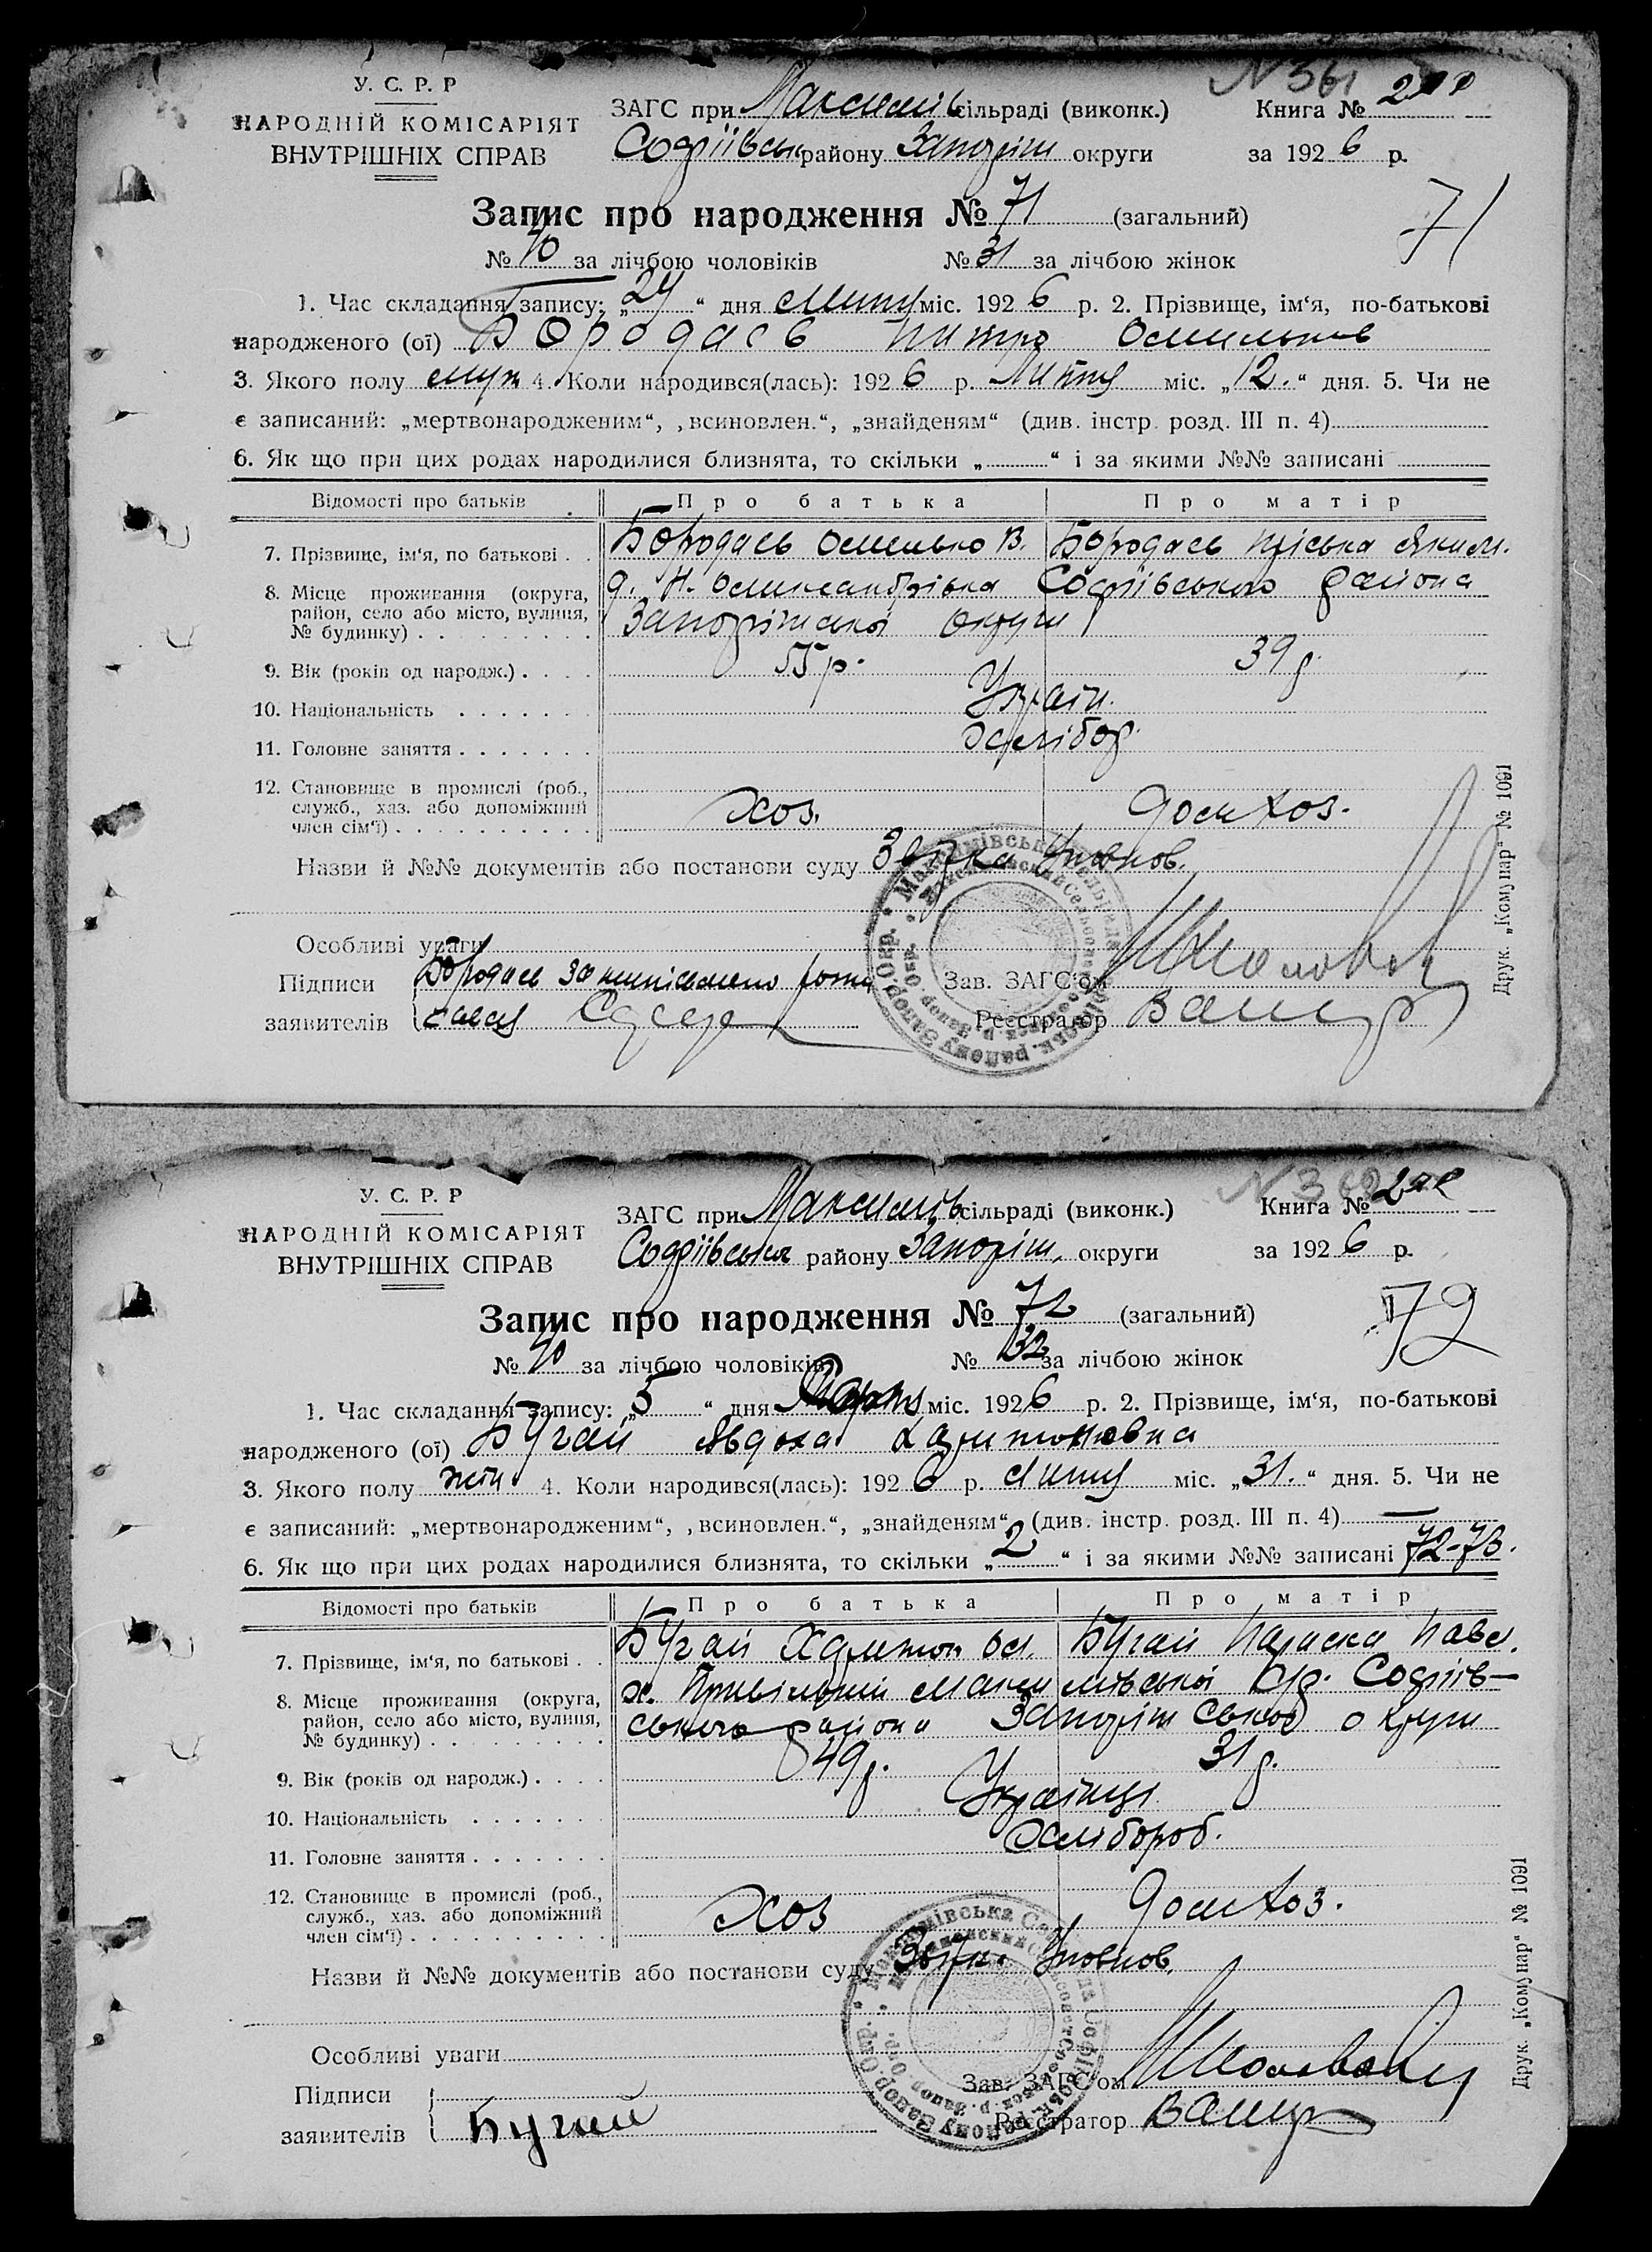 N 361
У. С. Р. Р
НАРОДНІЙ КОМІСАРІЯТ
ВНУТРІШНІХ СПРАВ
ЗАГС при Максимів сільраді (виконк.)
Книга №
Софіївськ району Запоріж округи
за 1926 р.
Запис про народження № 71 (загальний)
71
№ 40 за лічбою чоловіків № 31 за лічбою жінок
1. Час складання запису: „24“ дня міс. 1926 р. 2. Прізвище, ім‘я, по-батькові
народженого (ої) Бородаєв
3. Якого полу муж 4. Коли народився(лась): 1926 р. Лютня міс. „12.“ дня. 5. Чи не
є записаний: „мертвонародженим“, „всиновлен.“, „знайденям“ (див. інстр. розд. III п. 4)
6. Як що при цих родах народилися близнята, то скільки „ “ і за якими №№ записані
Відомості про батьків Про батька Про матір
7. Прізвище, ім‘я, по батькові . . Бородаєв В. Бородаєв
8. Місце проживання (округа, Софіївського района
район, село або місто, вулиця, Запоріжської округи
№ будинку) . . . . . . . . .
9. Вік (років од народж.) . . . . 55 р. 39 р.
10. Національність . . . . . . . Україн.
11. Головне заняття . . . . . . . Хлібор.
12. Становище в промислі (роб.,
служб., хаз. або допоміжний
член сім‘ї) . . . . . . . . . . хоз. дом хоз.
Назви й №№ документів або постанови суду
Особливі уваги
Підписи Бородаєв
Зав. ЗАГС‘ом
заявителів
Реєстратор
Друк. „Комунар“ № 1091
У. С. Р. Р
НАРОДНІЙ КОМІСАРІЯТ
ВНУТРІШНІХ СПРАВ
ЗАГС при Максимів сільраді (виконк.)
Книга №
Софіївськ району Запоріж. округи
за 1926 р.
Запис про народження № 72 (загальний)
72
№ 40 за лічбою чоловіків № 32 за лічбою жінок
1. Час складання запису: „5“ дня Марта міс. 1926 р. 2. Прізвище, ім‘я, по-батькові
народженого (ої) Бугай Явдоха Харитоновна
3. Якого полу жін. 4. Коли народився(лась): 1926 р. міс. „31.“ дня. 5. Чи не
є записаний: „мертвонародженим“, „всиновлен.“, „знайденям“ (див. інстр. розд. III п. 4) —
6. Як що при цих родах народилися близнята, то скільки „2“ і за якими №№ записані 72-73.
Відомості про батьків Про батька Про матір
7. Прізвище, ім‘я, по батькові . . Бугай Харитон Бугай Параска Павл.
8. Місце проживання (округа, х. Привільний Максимівської с/р. Софіїв-
район, село або місто, вулиця, ського района Запоріжської округи
№ будинку) . . . . . . . . .
9. Вік (років од народж.) . . . . 49 р. 31 р.
10. Національність . . . . . . . Українці
11. Головне заняття . . . . . . . Хлібороб.
12. Становище в промислі (роб.,
служб., хаз. або допоміжний
член сім‘ї) . . . . . . . . . . хоз дом хоз.
Назви й №№ документів або постанови суду
Особливі уваги
Підписи
Зав. ЗАГС‘ом
заявителів Бугай
Реєстратор
Друк. „Комунар“ № 1091